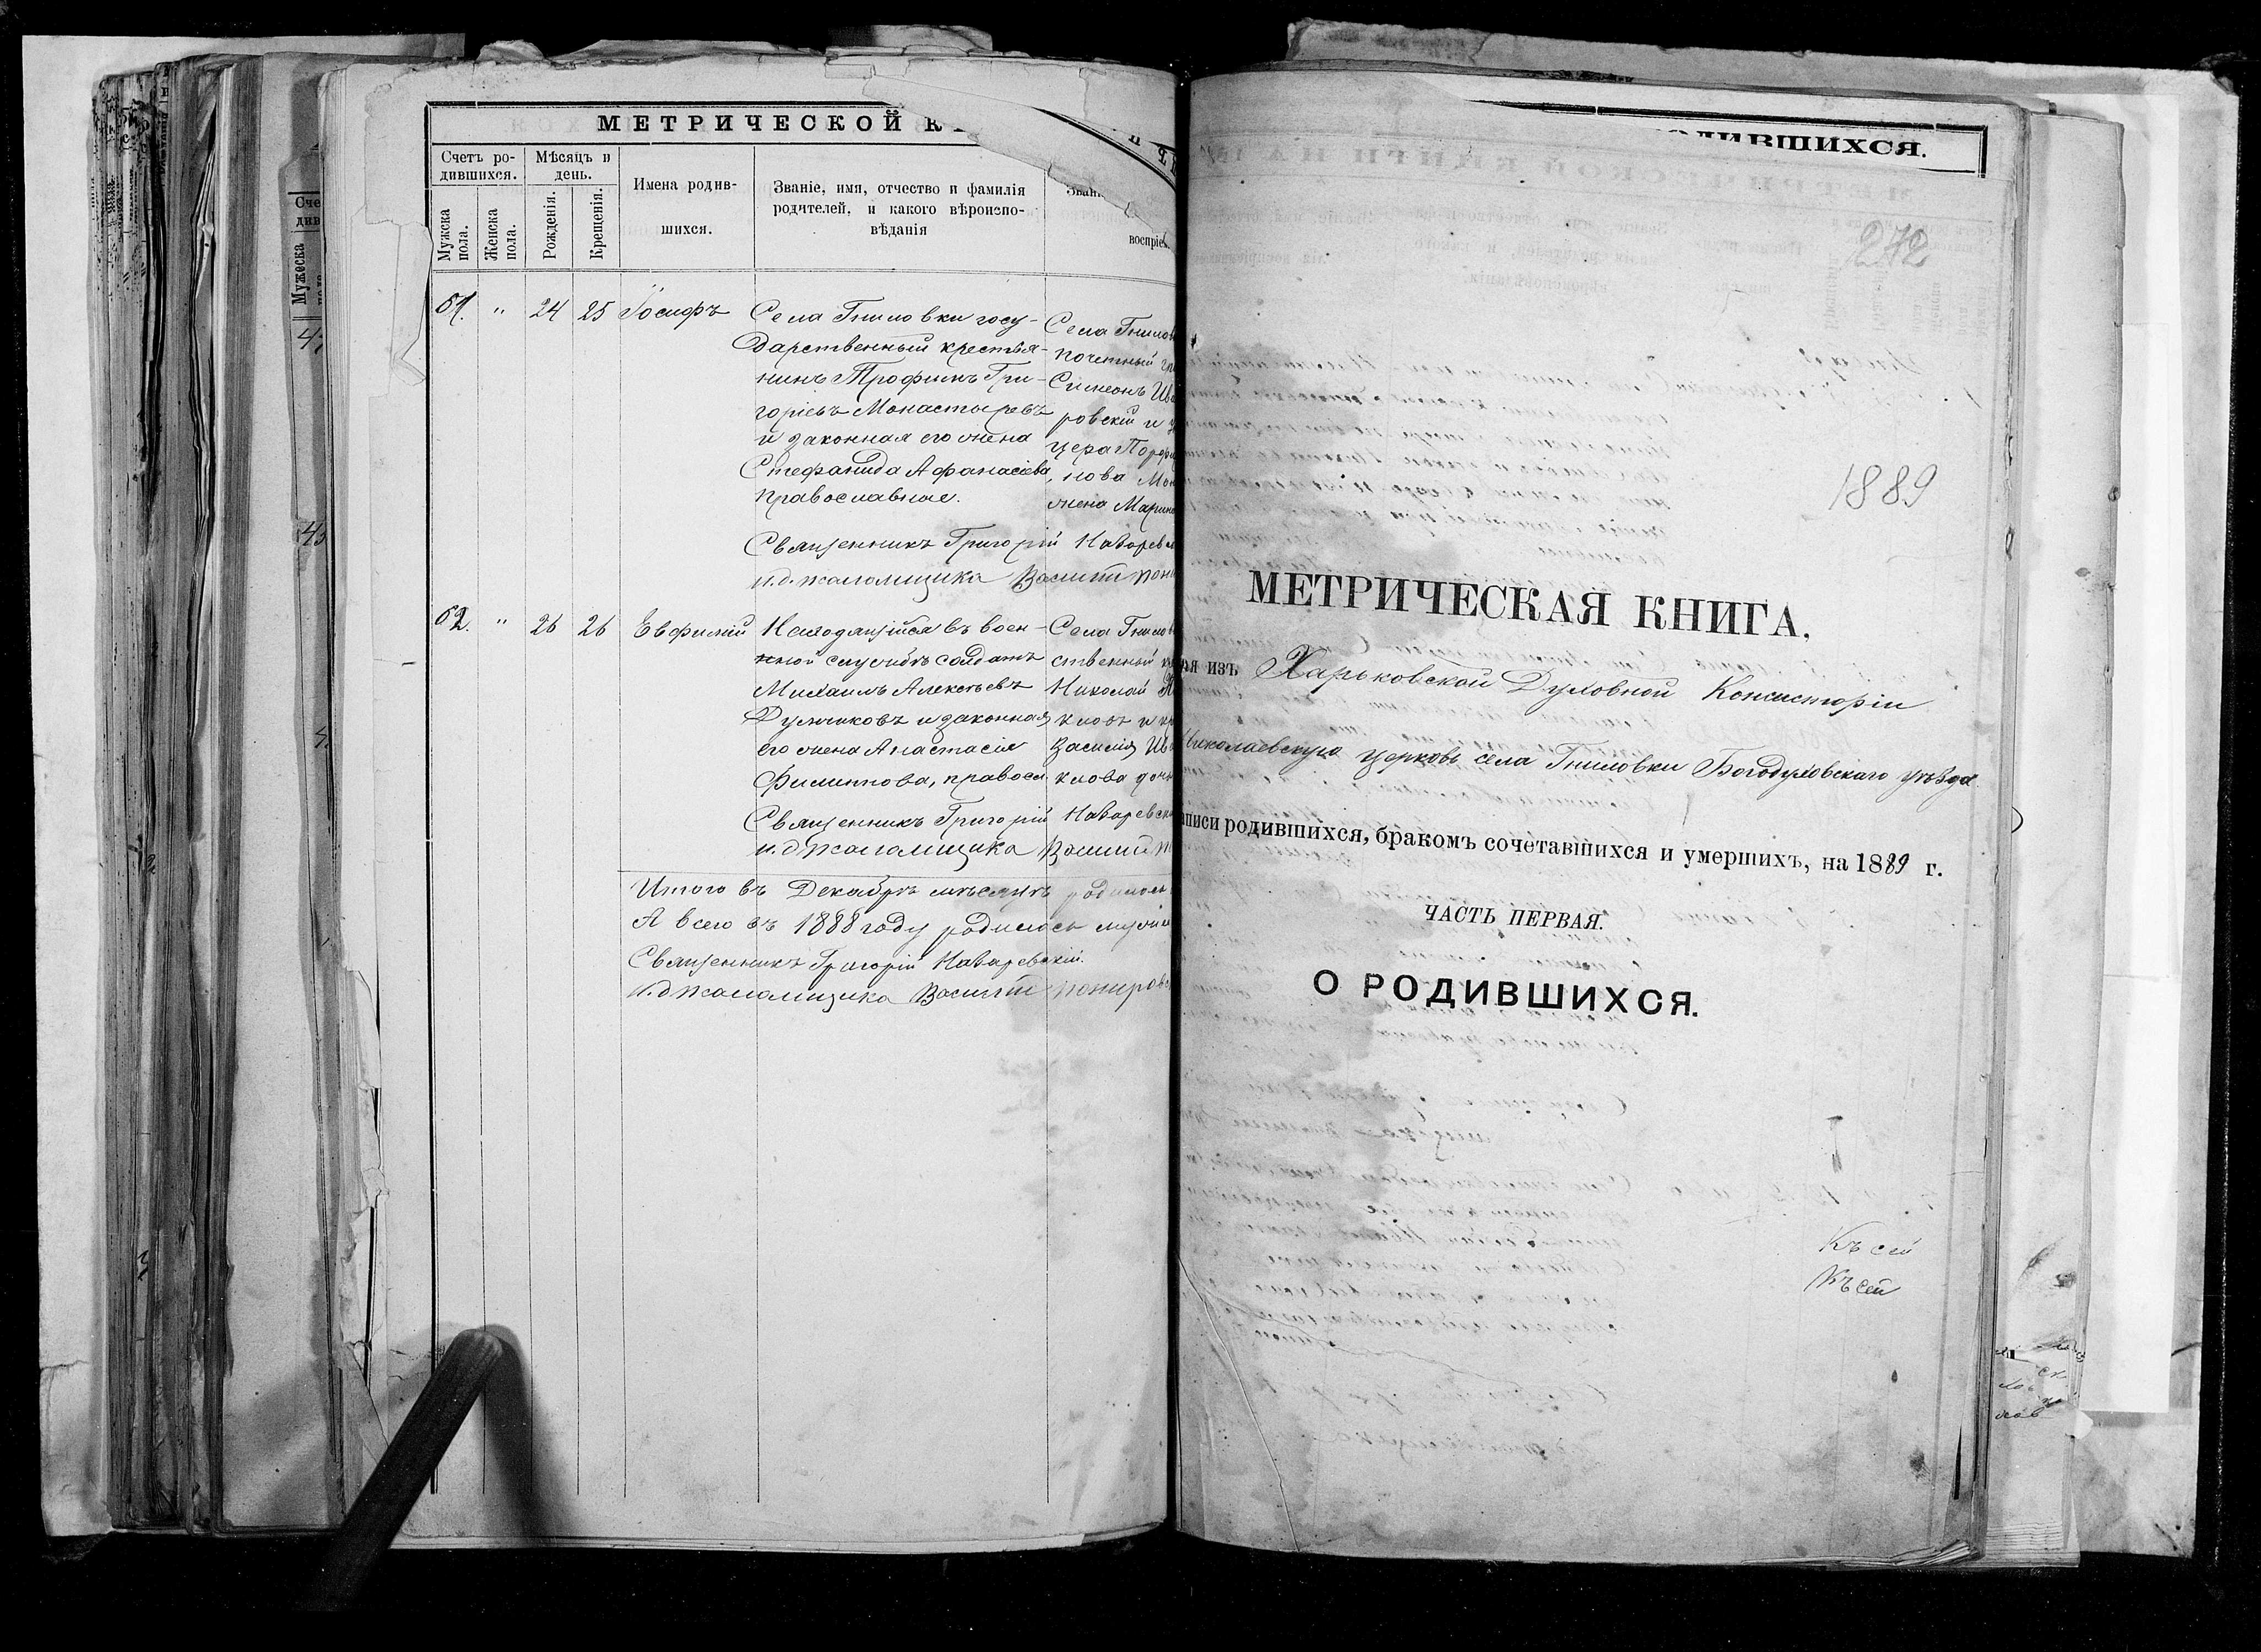 МЕТРИЧЕСКОЙ К
Счетъ ро-
дившихся.
Мѣсяцъ и
день.
Мужска
пола.
Женска
пола.
Рожденія.
Крещенія.
Имена родив-
шихся.
Званіе, имя, отчество и фамилія
родителей, и какого вѣроиспо-
вѣданія
Зван
воспріе
61. " 24 25 Іосифъ
Села Гниловки госу-
дарственный крестья-
нинъ Трофимъ Гри-
горіевъ Монастыревъ
и законная его жена
Стефанида Афанасіева,
православные.
Села Гнилов
почетный гр
Симеонъ Ив
ровскій и
цера Порфи
нова Мон
жена Марина
Священникъ Григорій
и. д. псаломщика Василій
62. " 26 26 Евфимій
Находящійся въ воен-
ной службѣ солдатъ
Михаилъ Алексѣевъ
Думчиковъ и законная
его жена Анастасія
Филиппова, правосл
Села Гнилов
ственный
Николай
ковъ и
Василія Ив
кова дочь
Священникъ Григорій
и. д. псаломщика Василій
Итого въ Декабрѣ мѣсяцѣ родилось
А всего въ 1888 году родилось мужск
Священникъ Григорій
и. д. псаломщика Василій
ОДИВШИХСЯ.
272
1889
МЕТРИЧЕСКАЯ КНИГА,
ая изъ Харьковской Духовной Консисторіи
Николаевскую церковь села Гниловки Богодуховскаго уѣзда
аписи родившихся, бракомъ сочетавшихся и умершихъ, на 1889 г.
ЧАСТЬ ПЕРВАЯ.
О РОДИВШИХСЯ.
Къ сей
Къ сей